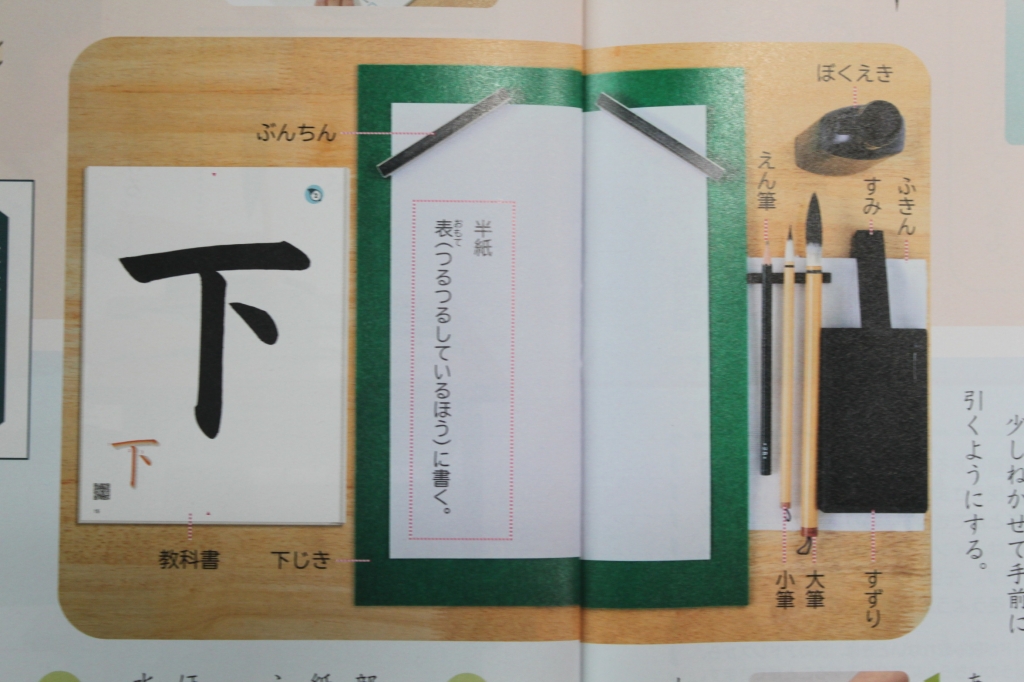 ぼくえき
ふきん
すみ
えん筆
ぶんちん
半紙
表(つるつるしているほう)に書く。
おもて
下
下
教科書
下じき
小筆
大筆
すずり
少しねかせて手前に
引くようにする。